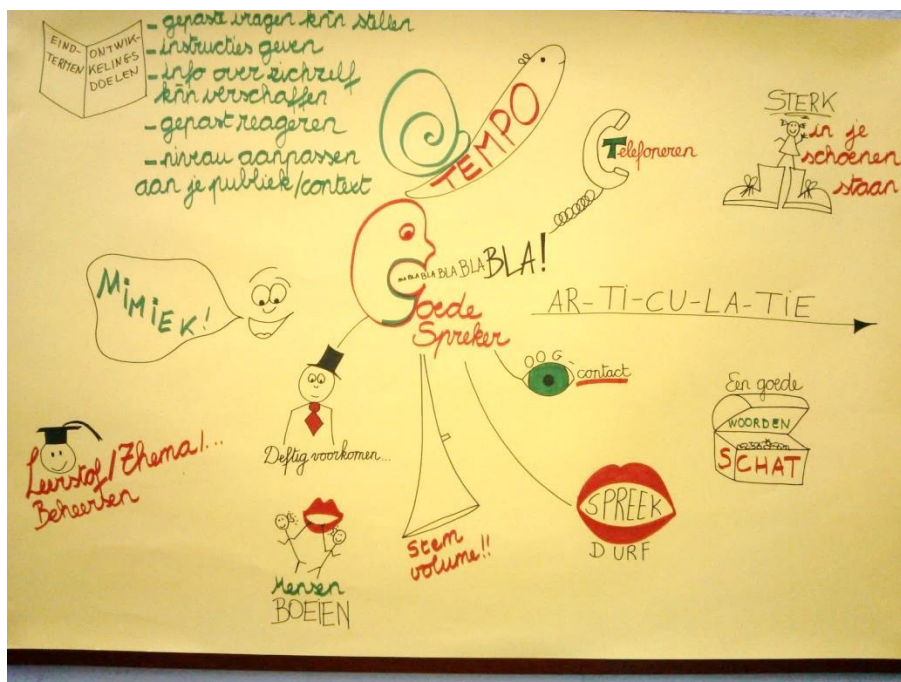 EIND-
TERMEN
ONTWIK-
KELINGS
DOELEN
- gepaste vragen kn'n stellen
- instructies geven
- info over zichzelf
kn'n verschaffen
- gepast reageren
- niveau aanpassen
aan je publiek/context
TEMPO
Telefoneren
STERK
in je
schoenen
staan
BLA BLA BLA BLA BLA BLA!
Goede
Spreker
MiMiEK!
AR-TI-CU-LA-TIE
OOG
contact
Een goede
WOORDEN
SCHAT
Deftig voorkomen...
Leerstof/Thema/...
Beheersen
Mensen
BOEIEN
Stem
volume!!
SPREEK
DURF